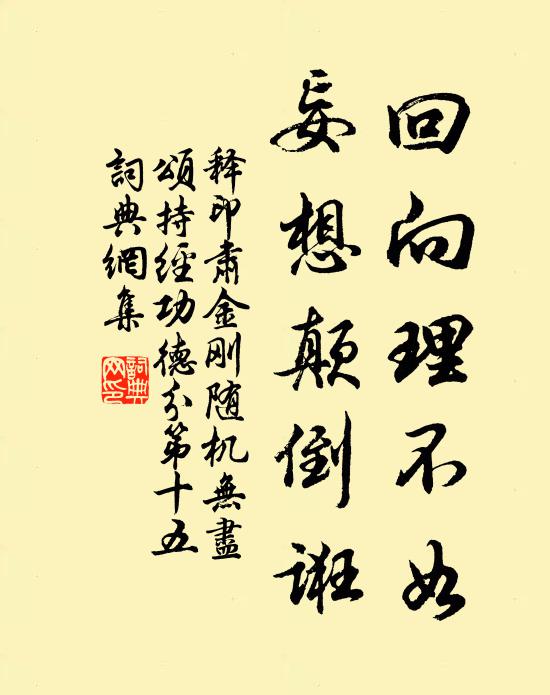 回向理不如
妄想颠倒诳
释印肃金刚随机無盡
頌持經功德分第十五
詞典網集
詞典
网印